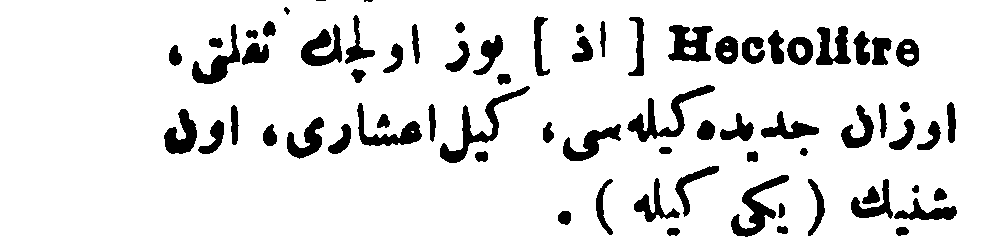 Hectolitre [ اذ ] يوز اولچك ثقلتی،
اوزان جديده كيله سی، كيل اعشاری، اون
شنيك ( يكی كيله ) .